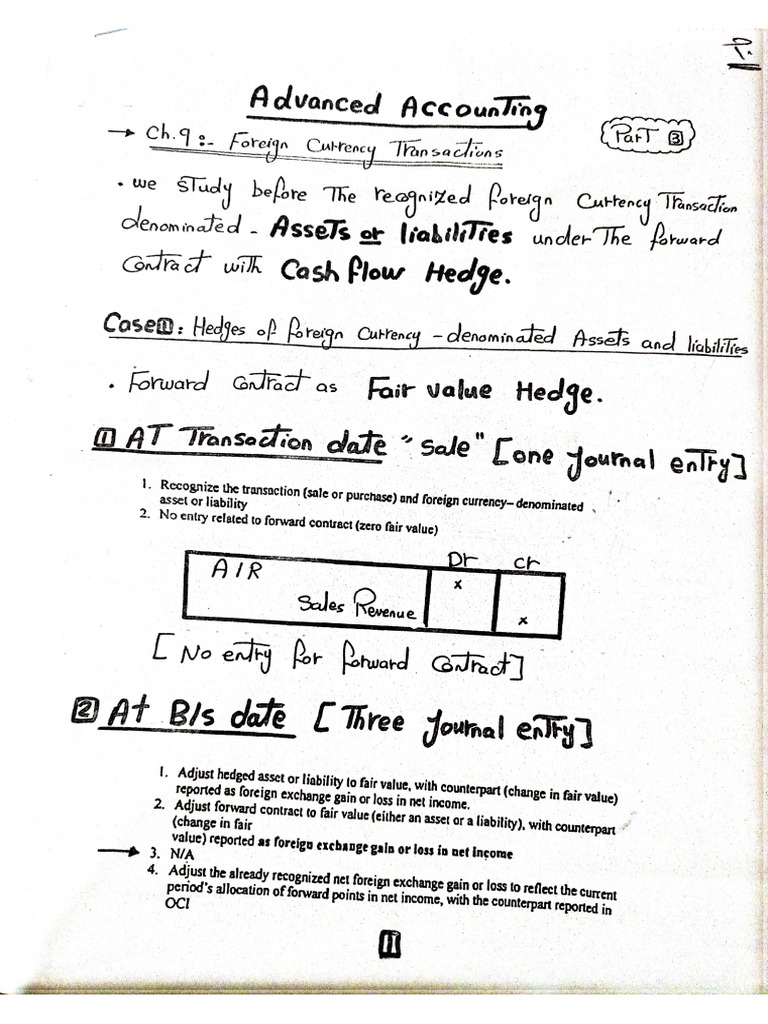 P.
Advanced Accounting
→ Ch.9 :- Foreign Currency Transactions
Part 3
• we study before The recognized foreign Currency Transaction
denominated - Assets or liabilities under The forward
Contract with Cash flow Hedge.
Case 1: Hedges of foreign Currency - denominated Assets and liabilities
• Forward Contract as Fair value Hedge.
1 AT Transaction date "sale" [one Journal entry]
1. Recognize the transaction (sale or purchase) and foreign currency– denominated
asset or liability
2. No entry related to forward contract (zero fair value)
Dr cr
A/R x
Sales Revenue x
[ No entry for forward Contract]
2 At B/s date [Three Journal entry]
1. Adjust hedged asset or liability to fair value, with counterpart (change in fair value)
reported as foreign exchange gain or loss in net income.
2. Adjust forward contract to fair value (either an asset or a liability), with counterpart
(change in fair
value) reported as foreign exchange gain or loss in net income
→ 3. N/A
4. Adjust the already recognized net foreign exchange gain or loss to reflect the current
period's allocation of forward points in net income, with the counterpart reported in
OCI
1